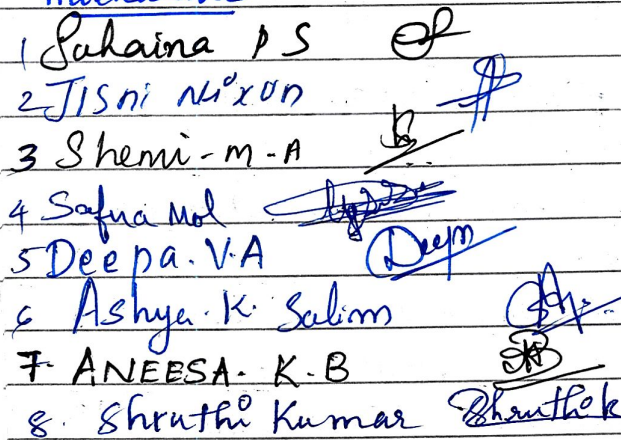 1 Suhaina P S
2 JISni Nixon
3 Shemi-M-A
4 Safna Mol
5 Deepa. V. A Deepa
6 Ashya. K. Salim
7. ANEESA. K. B
8. Shruthi Kumar Shruthi k